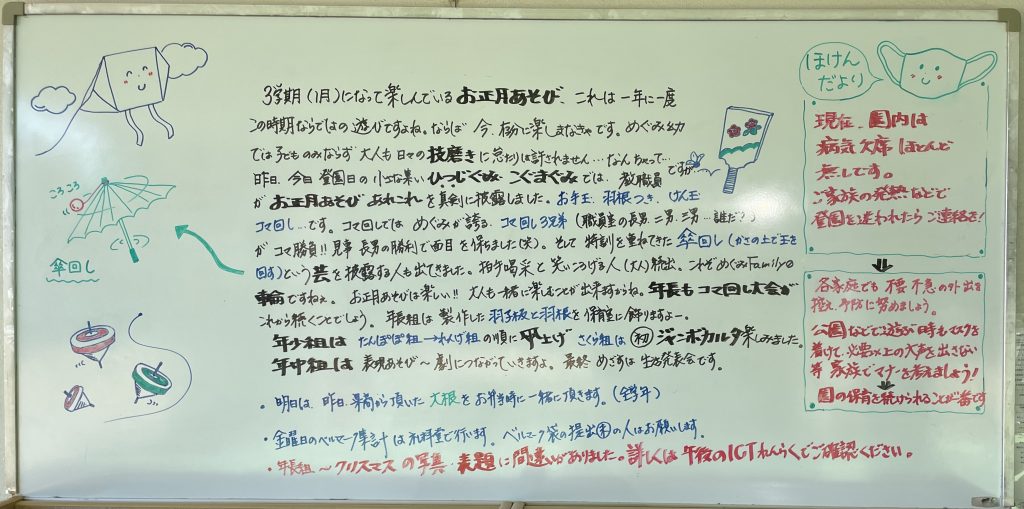 3学期(1月)になって楽しんでいるお正月あそび、これは一年に一度
この時期ならではの遊びですよね。ならば 今、十分に楽しまなきゃです。めぐみ幼
では子どものみならず 大人も日々の技磨きに怠りは許されません…なんちゃって…
昨日、今日 登園日の小さな集い ひつじぐみ こぐまぐみでは、教職員ですが
が お正月あそび あれこれを真剣に披露しました。お手玉、羽根つき、けん玉
コマ回し…です。コマ回しでは めぐみが誇る、コマ回し3兄弟(職員室の長男 二男 三男…誰だ?)
が コマ勝負!! 見事 長男の勝利で面目を保ちました(笑)。そして 特訓を重ねてきた 傘回し(かさの上で玉を
回す)という芸を披露する人も出てきました。拍手喝采と笑いころげる人(大人)続出。これぞめぐみFamilyの
輪ですねぇ。 お正月あそびは楽しい!! 大人も一緒に楽しむことが出来ますからね。年長もコマ回し大会が
これから続くことでしょう。年長組は製作した羽子板と羽根を保育室に飾りますよー。
年少組は たんぽぽ組→れんげ組の順に凧上げ さくら組は 初 ジャンボカルタ楽しみました。
年中組は 表現あそび〜劇につながっていきますよ。最終 めざすは 生活発表会です。
・明日は、昨日、 頂いた大根をお弁当時に一緒に頂きます。(全学年)
・金曜日のベルマーク集計は 行います。ベルマーク袋の提出 の人はお願いします。
・年長組〜クリスマスの写真 表題に間違いがありました。詳しくは 午後のICTれんらくでご確認ください。
ころころ
傘回し
ほけん
だより
現在、園内は
病気欠席 ほとんど
無しです。
ご家族の発熱などで
登園を迷われたら ご連絡を!
各家庭でも 不要不急の外出を
控え 予防に努めましょう。
公園などで遊ぶ時もマスクを
着けて、必要以上の大声を出さない
等 家族でマナーを考えましょう!
園の保育を続けられることが一番です